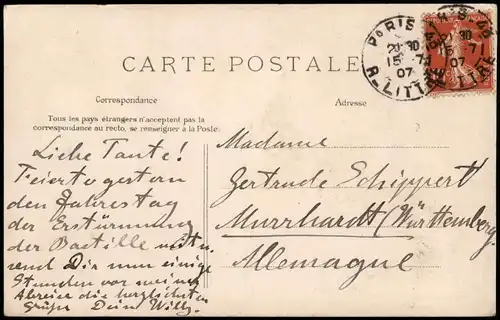 CARTE POSTALE
Correspondance
Adresse
Tous les pays étrangers n'acceptent pas la
correspondance au recto, se renseigner à la Poste.
PARIS
20 30
15-7
07
R-LITTRE
Liebe Tante!
Feierte gestern
den Jahrestag
der Erstürmung
der Bastille
send Dir nun einige
Stunden vor meiner
Abreise die herzlichsten
Grüße Dein Willy.
Madame
Gertrude Schippert
Murrhardt (Württemberg)
Allemagne